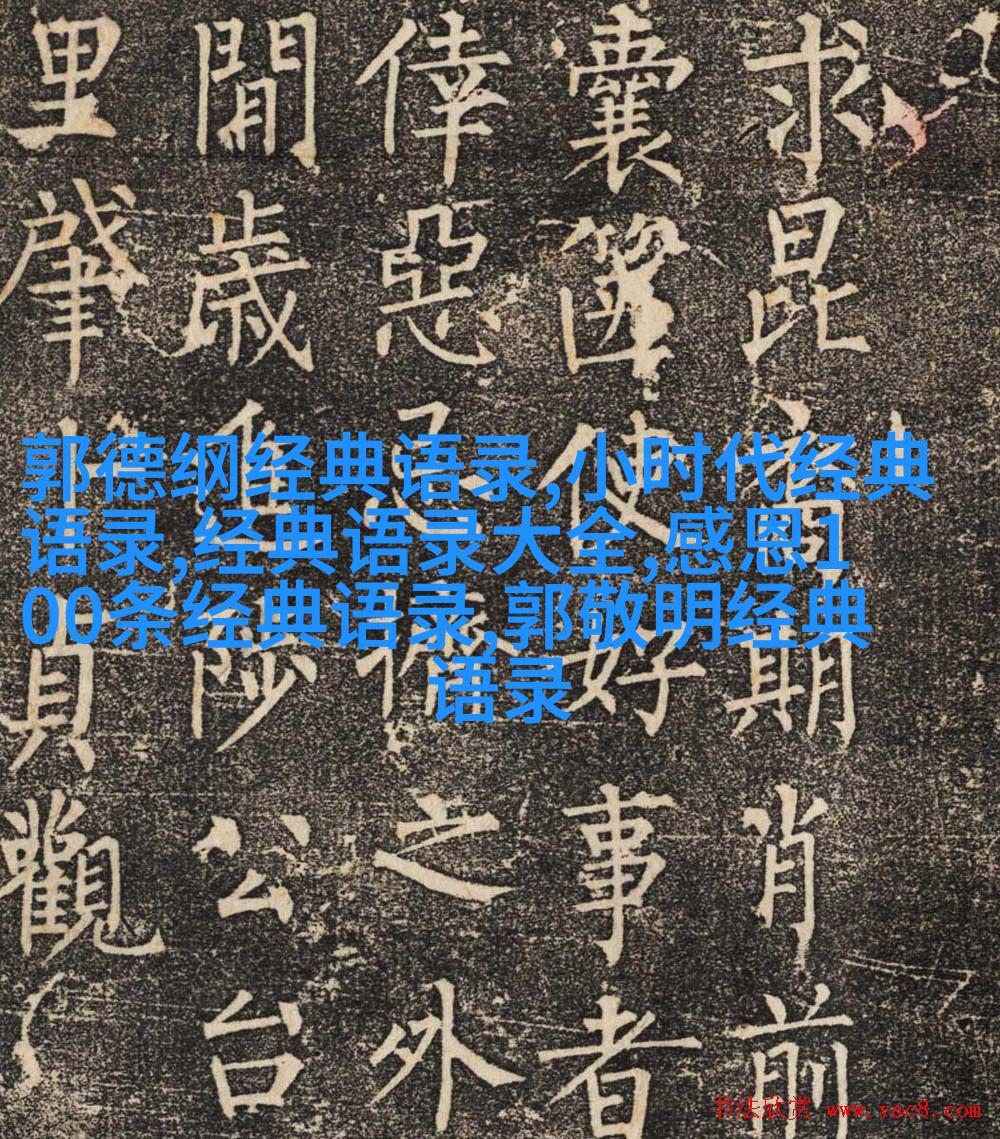 求昆期肖前
囊篋使好事者
倖惡之外
閒歲進陟公台
里肇貞觀
郭德纲经典语录,小时代经典
语录,经典语录大全,感恩1
00条经典语录,郭敬明经典
语录
书法欣赏 www.yac8.com